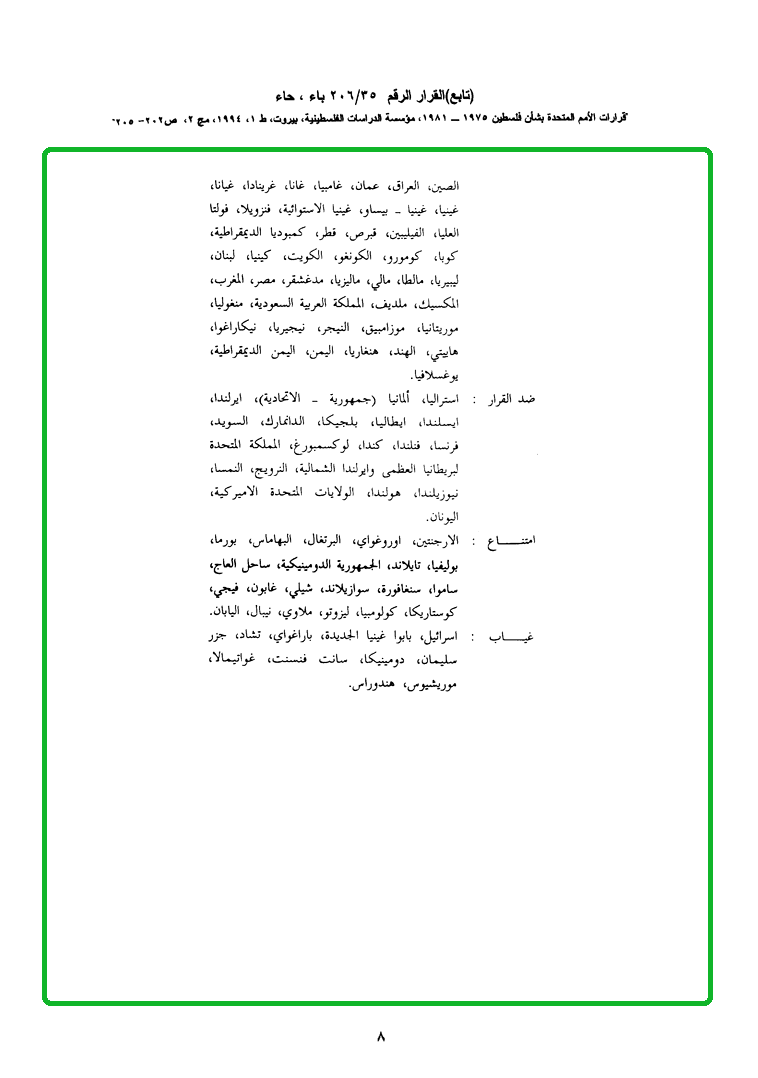 (تابع)القرار الرقم ٢٠٦/٣٥ باء ، حاء
قرارات الأمم المتحدة بشأن فلسطين ١٩٧٥ – ١٩٨١، مؤسسة الدراسات الفلسطينية، بيروت، ط ١، ١٩٩٤، مج ٢، ص٢٠٢- ٢٠٥
الصين، العراق، عمان، غامبيا، غانا، غرينادا، غيانا،
غينيا، غينيا ـ بيساو، غينيا الاستوائية، فنزويلا، فولتا
العليا، الفيليبين، قبرص، قطر، كمبوديا الديمقراطية،
كوبا، كومورو، الكونغو، الكويت، كينيا، لبنان،
ليبيريا، مالطا، مالي، ماليزيا، مدغشقر، مصر، المغرب،
المكسيك، ملديف، المملكة العربية السعودية، منغوليا،
موريتانيا، موزامبيق، النيجر، نيجيريا، نيكاراغوا،
هاييتي، الهند، هنغاريا، اليمن، اليمن الديمقراطية،
يوغسلافيا.
ضد القرار : استراليا، ألمانيا (جمهورية ـ الاتحادية)، ايرلندا،
ايسلندا، ايطاليا، بلجيكا، الدانمارك، السويد،
فرنسا، فنلندا، كندا، لوكسمبورغ، المملكة المتحدة
لبريطانيا العظمى وايرلندا الشمالية، النرويج، النمسا،
نيوزيلندا، هولندا، الولايات المتحدة الاميركية،
اليونان.
امتنـــــاع : الارجنتين، اوروغواي، البرتغال، البهاماس، بورما،
بوليفيا، تايلاند، الجمهورية الدومينيكية، ساحل العاج،
ساموا، سنغافورة، سوازيلاند، شيلي، غابون، فيجي،
كوستاريكا، كولومبيا، ليزوتو، ملاوي، نيبال، اليابان.
غيـــــاب : اسرائيل، بابوا غينيا الجديدة، باراغواي، تشاد، جزر
سليمان، دومينيكا، سانت فنسنت، غواتيمالا،
موريشيوس، هندوراس.
٨